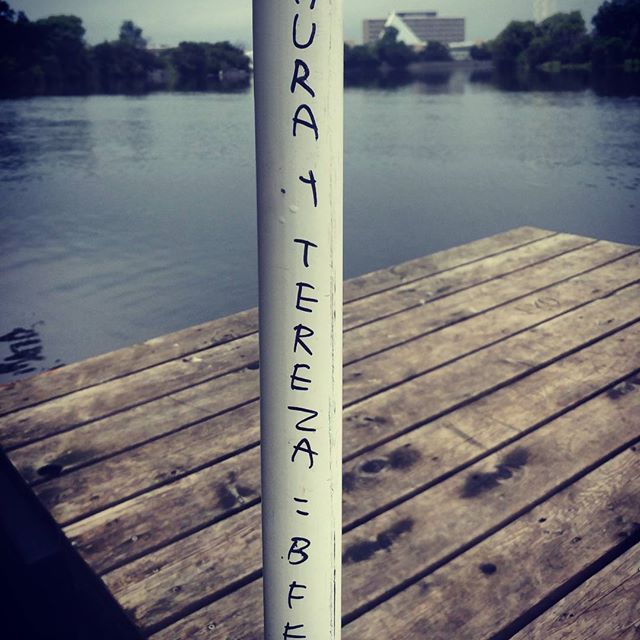 URA + TEREZA = BF